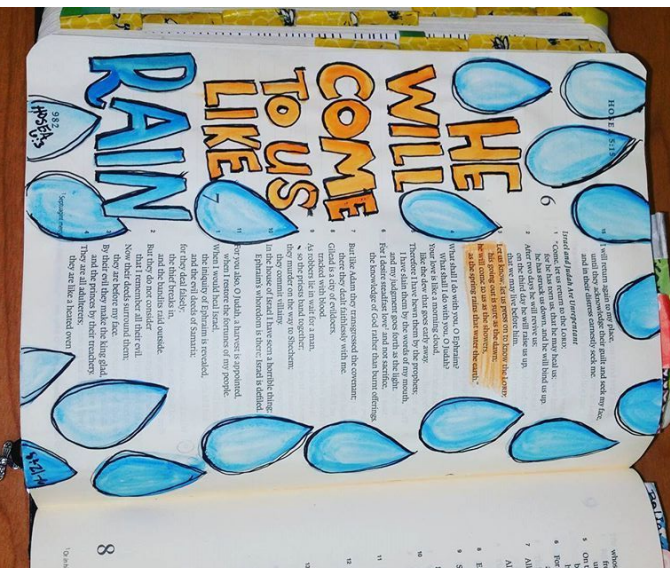 HOSEA 5:15
HE
WILL
COME
TO US
LIKE
RAIN
982
HOSEA'S
15 I will return again to my place,
until they acknowledge their guilt and seek my face,
and in their distress earnestly seek me.
Israel and Judah Are Unrepentant
6
1 "Come, let us return to the LORD;
for he has torn us, that he may heal us;
he has struck us down, and he will bind us up.
2 After two days he will revive us;
on the third day he will raise us up,
that we may live before him.
3 Let us know; let us press on to know the LORD;
his going out is sure as the dawn;
he will come to us as the showers,
as the spring rains that water the earth."
4 What shall I do with you, O Ephraim?
What shall I do with you, O Judah?
Your love is like a morning cloud,
like the dew that goes early away.
5 Therefore I have hewn them by the prophets;
I have slain them by the words of my mouth,
and my judgment goes forth as the light.
6 For I desire steadfast love and not sacrifice,
the knowledge of God rather than burnt offerings.
7 But like Adam they transgressed the covenant;
there they dealt faithlessly with me.
8 Gilead is a city of evildoers,
tracked with blood.
9 As robbers lie in wait for a man,
so the priests band together;
they murder on the way to Shechem;
they commit villainy.
10 In the house of Israel I have seen a horrible thing;
Ephraim's whoredom is there; Israel is defiled.
11 For you also, O Judah, a harvest is appointed.
When I restore the fortunes of my people,
7
When I would heal Israel,
the iniquity of Ephraim is revealed,
and the evil deeds of Samaria;
for they deal falsely;
the thief breaks in,
and the bandits raid outside.
2 But they do not consider
that I remember all their evil.
Now their deeds surround them;
they are before my face.
3 By their evil they make the king glad,
and the princes by their treachery.
4 They are all adulterers;
they are like a heated oven
8